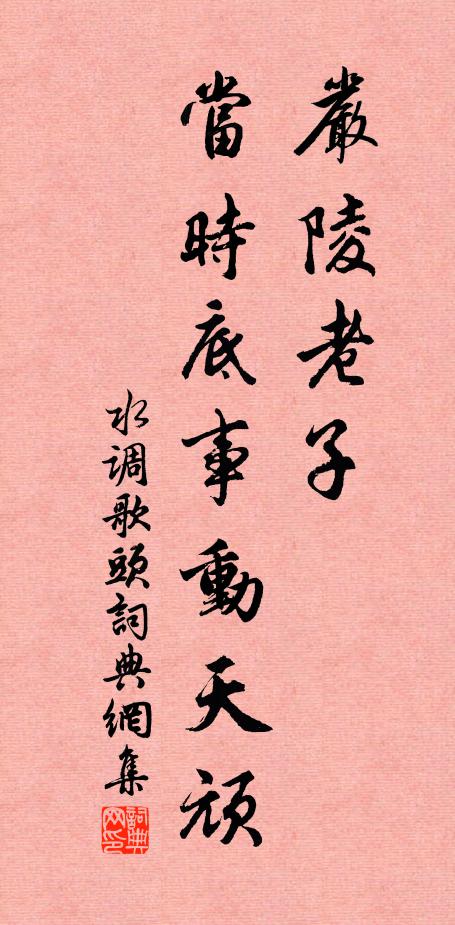 嚴陵老子
當時底事動天顏
水調歌頭詞典網集
詞典网印